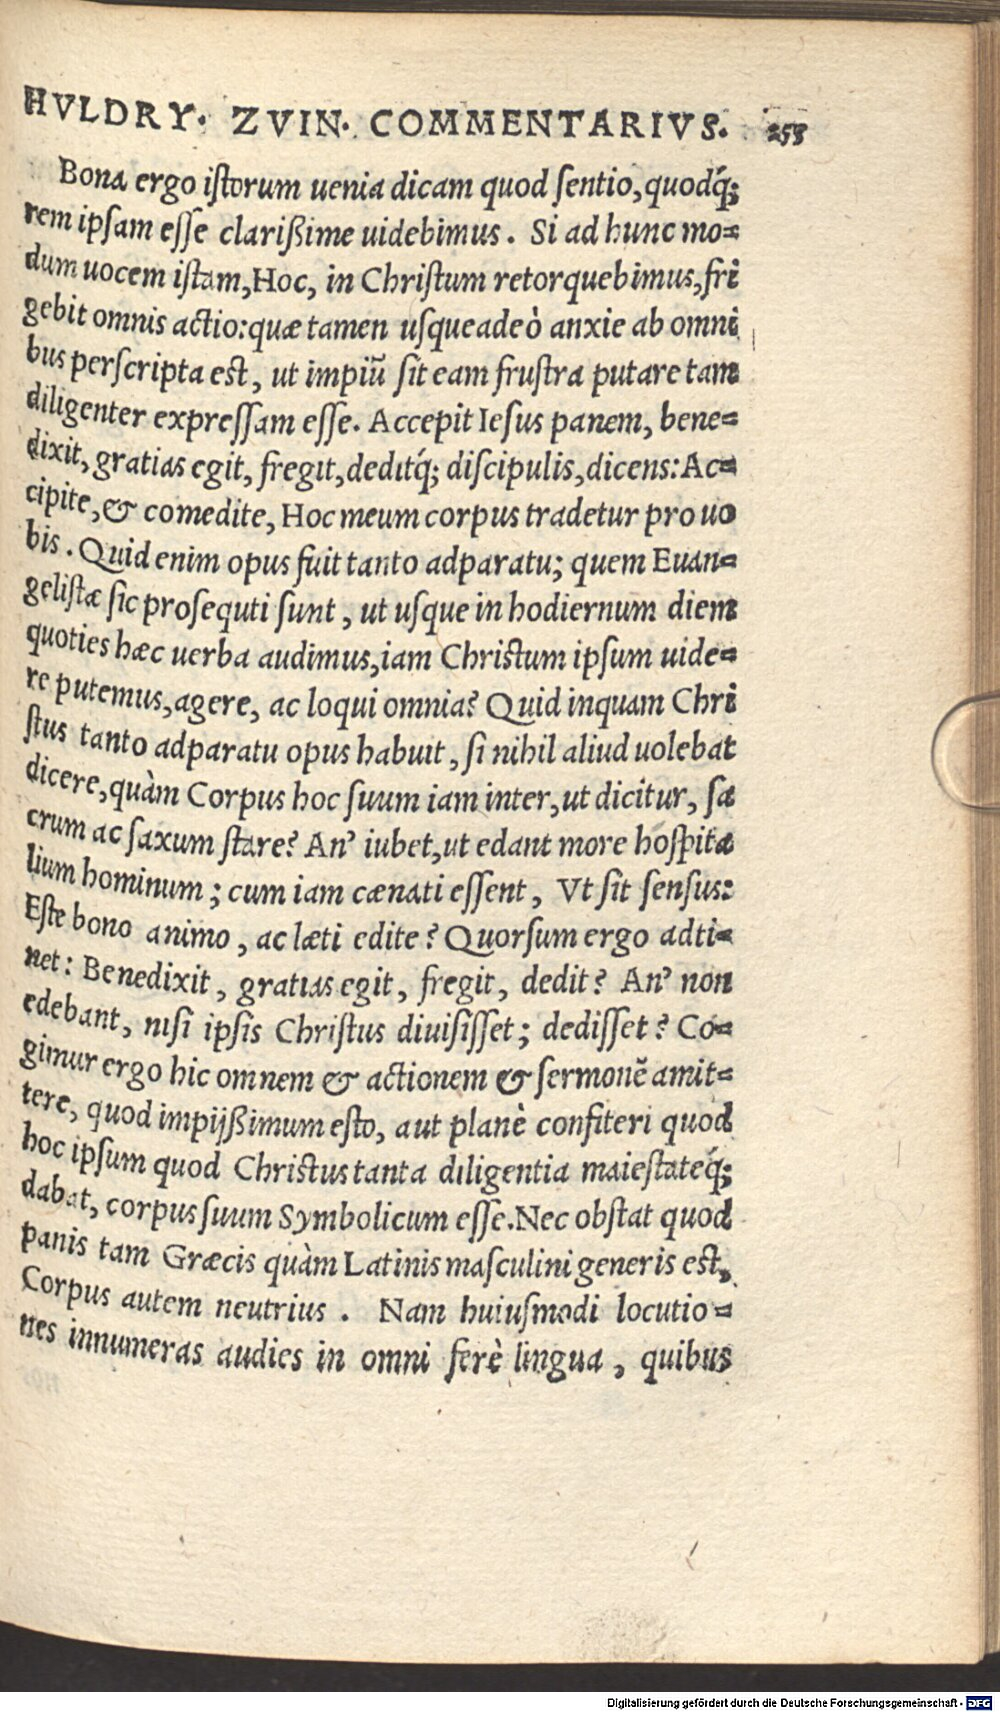 HVLDRY. ZVIN. COMMENTARIVS. 253
Bona ergo iſtorum uenia dicam quod ſentio, quodq́;
rem ipſam eſſe clarißime uidebimus. Si ad hunc mo=
dum uocem iſtam, Hoc, in Chriſtum retorquebimus, fri
gebit omnis actio: quæ tamen uſqueadeò anxie ab omni
bus perſcripta est, ut impiū ſit eam fruſtra putare tam
diligenter expreſſam eſſe. Accepit Ieſus panem, bene=
dixit, gratias egit, fregit, deditq́; diſcipulis, dicens: Ac=
cipite, & comedite, Hoc meum corpus tradetur pro uo
bis. Quid enim opus fuit tanto adparatu; quem Euan=
geliſtæ ſic proſequti ſunt, ut uſque in hodiernum diem
quoties hæc uerba audimus, iam Christum ipſum uide=
re putemus, agere, ac loqui omnia? Quid inquam Chri
ſtus tanto adparatu opus habuit, ſi nihil aliud uolebat
dicere, quàm Corpus hoc ſuum iam inter, ut dicitur, ſa
crum ac ſaxum ſtare? An' iubet, ut edant more hoſpita
lium hominum; cum iam cænati eſſent, Vt ſit ſenſus:
Eſte bono animo, ac læti edite? Quorſum ergo adti=
net: Benedixit, gratias egit, fregit, dedit? An' non
edebant, niſi ipſis Chriſtus diuiſiſſet; dediſſet? Co=
gimur ergo hic omnem & actionem & ſermonē amit=
tere, quod impijßimum eſto, aut planè confiteri quod
hoc ipſum quod Christus tanta diligentia maieſtateq́;
dabat, corpus ſuum Symbolicum eſſe. Nec obſtat quod
panis tam Græcis quàm Latinis maſculini generis est,
Corpus autem neutrius. Nam huiuſmodi locutio=
nes innumeras audies in omni ferè lingua, quibus
Digitalisierung gefördert durch die Deutsche Forschungsgemeinschaft - DFG